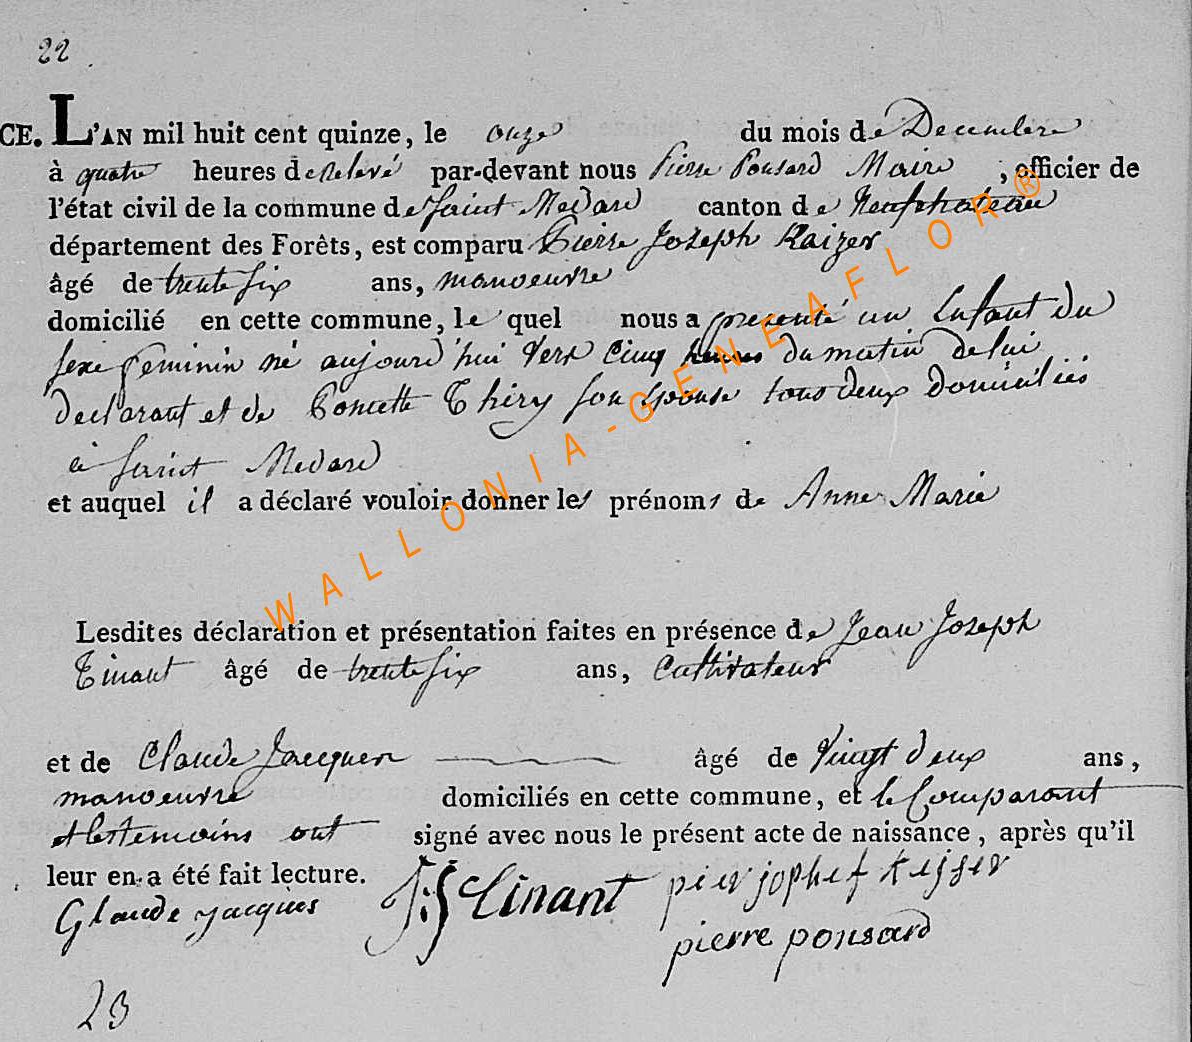 22
CE. L'AN mil huit cent quinze, le onze du mois de Decembre
à quatre heures de relevé par-devant nous Pierre Ponsard Maire, officier de
l'état civil de la commune de Saint Medard canton de Neufchateau
département des Forêts, est comparu Pierre Joseph Kaizer
âgé de trente six ans, manoeuvre
domicilié en cette commune, le quel nous a presenté un Enfant du
sexe feminin né aujourd'hui vers cinq heures du matin de lui
declarant et de Poncette Thiry son Epouse tous deux domiciliés
à Saint Medard
et auquel il a déclaré vouloir donner les prénoms de Anne Marie
Lesdites déclaration et présentation faites en présence de Jean Joseph
Tinant âgé de trente six ans, Cultivateur
et de Claude Jacques âgé de vingt deux ans,
manoeuvre domiciliés en cette commune, et le Comparant
et les temoins ont signé avec nous le présent acte de naissance, après qu'il
leur en a été fait lecture.
Glaude jacques J:J tinant pier jophef keijser
pierre ponsard
23
WALLONIA-GENEAFLOR®